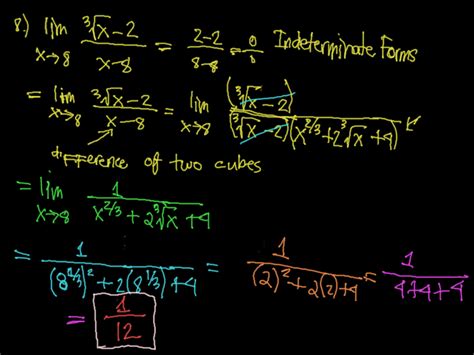 8.) lim x→8 (∛x − 2)/(x − 8) = (2−2)/(8−8) = 0/0 Indeterminate Forms
= lim x→8 (∛x − 2)/(x − 8) = lim x→8 (∛x − 2)/((∛x − 2)(x^{2/3} + 2∛x + 4))
difference of two cubes
= lim x→8 1/(x^{2/3} + 2∛x + 4)
= 1/((8^{1/3})² + 2(8^{1/3}) + 4) = 1/((2)² + 2(2) + 4) = 1/(4+4+4)
= 1/12